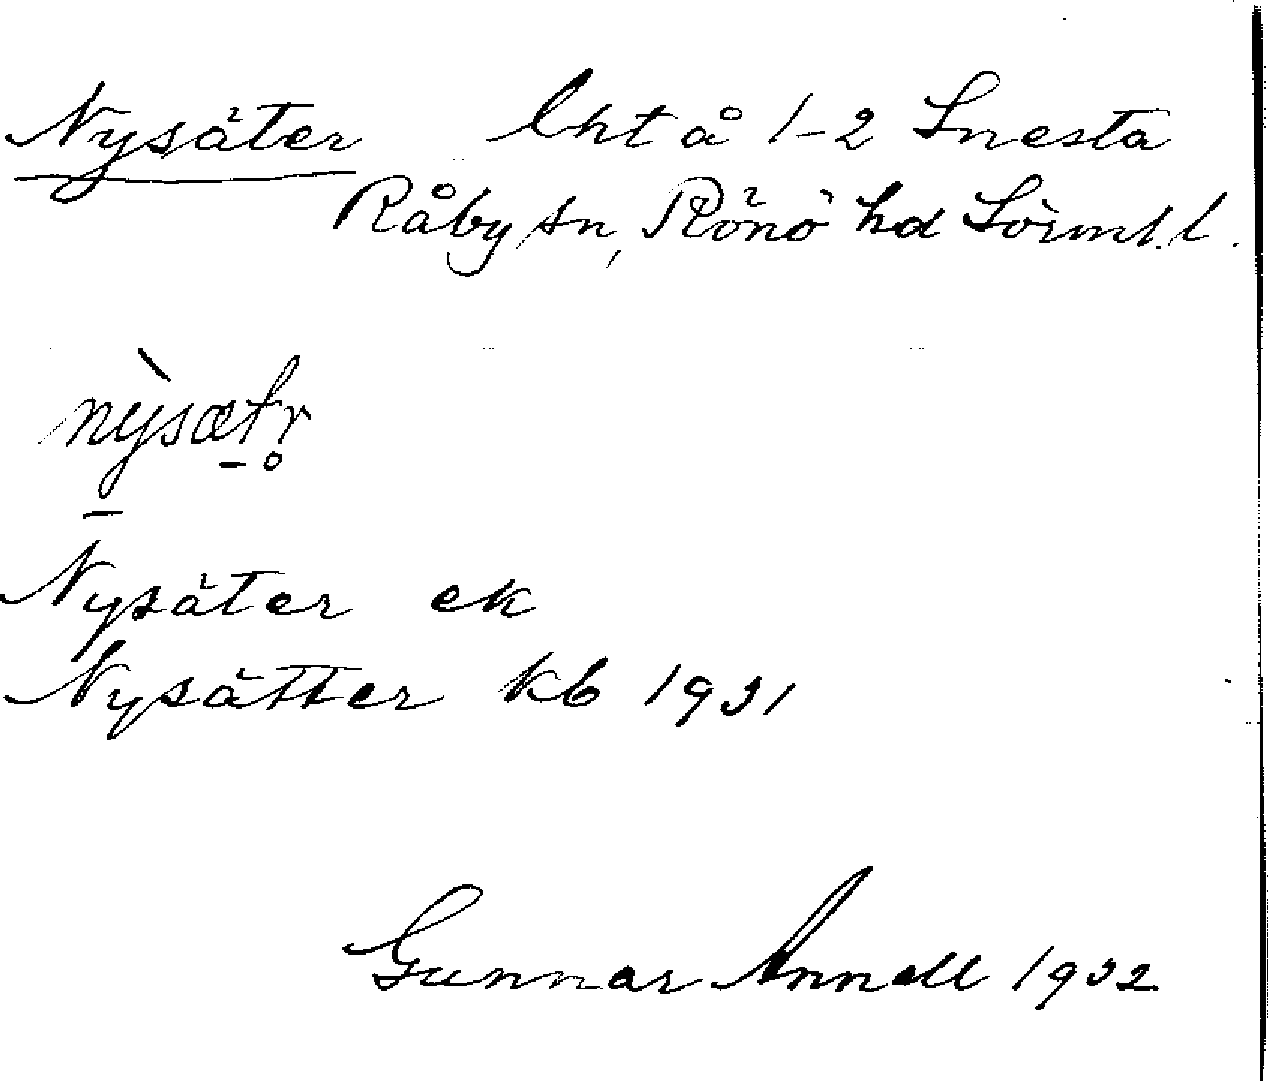 Nysäter lht å 1-2 Snesta
Råby sn, Rönö hd Sörml. l.
nỳsætr̥
Nysäter ek
Nysätter kb 1931
Gunnar Annell 1932